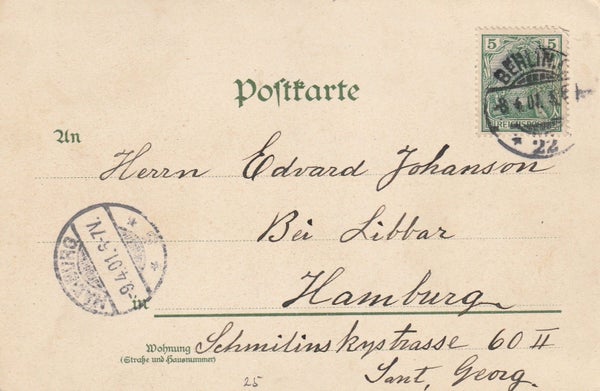 5 5
REICHSPOST
BERLIN
8.4.01.
* 22
Postkarte
An
Herrn Edvard Johanson
Bei Libbar
HAMBURG
-9.4.01.6-7V.
in Hamburg
Wohnung Schmilinskystrasse 60 II
(Straße und Hausnummer)
Sant Georg
25